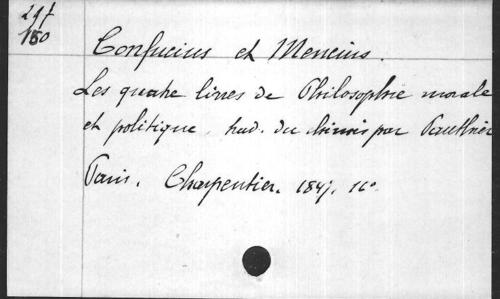 297
150
Confucius et Mencius.
Les quatre livres de Philosophie morale
et politique, trad. du chinois par Pauthier
Paris. Charpentier. 1847. 16º